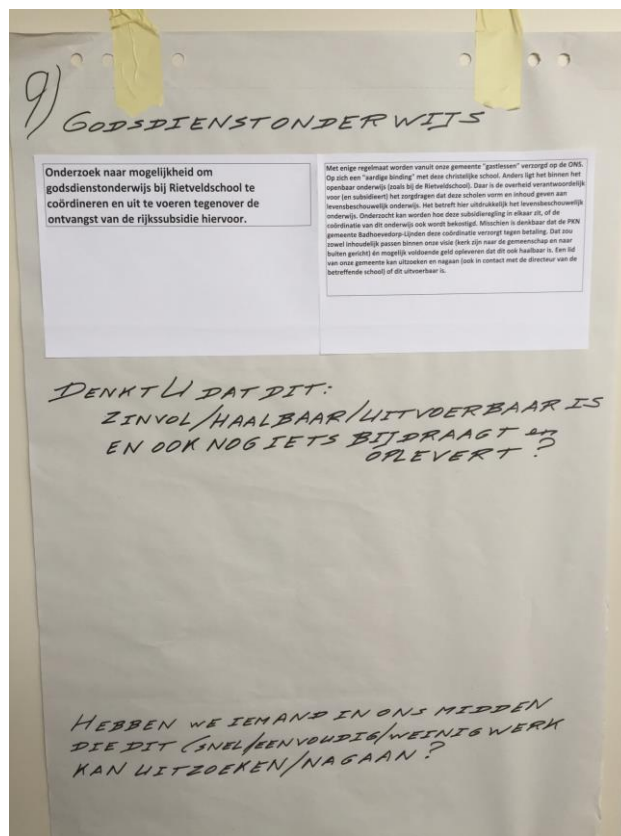 9) GODSDIENSTONDERWIJS
Onderzoek naar mogelijkheid om
godsdienstonderwijs bij Rietveldschool te
coördineren en uit te voeren tegenover de
ontvangst van de rijkssubsidie hiervoor.
Met enige regelmaat worden vanuit onze gemeente "gastlessen" verzorgd op de ONS.
Op zich een "aardige binding" met deze christelijke school. Anders ligt het binnen het
openbaar onderwijs (zoals bij de Rietveldschool). Daar is de overheid verantwoordelijk
voor (en subsidieert) het zorgdragen dat deze scholen vorm en inhoud geven aan
levensbeschouwelijk onderwijs. Het betreft hier uitdrukkelijk het levensbeschouwelijk
onderwijs. Onderzocht kan worden hoe deze subsidieregling in elkaar zit, of de
coördinatie van dit onderwijs ook wordt bekostigd. Misschien is denkbaar dat de PKN
gemeente Badhoevedorp-Lijnden deze coördinatie verzorgt tegen betaling. Dat zou
zowel inhoudelijk passen binnen onze visie (kerk zijn naar de gemeenschap en naar
buiten gericht) én mogelijk voldoende geld opleveren dat dit ook haalbaar is. Een lid
van onze gemeente kan uitzoeken en nagaan (ook in contact met de directeur van de
betreffende school) of dit uitvoerbaar is.
DENKT U DAT DIT:
ZINVOL/HAALBAAR/UITVOERBAAR IS
EN OOK NOG IETS BIJDRAAGT en
OPLEVERT?
HEBBEN WE IEMAND IN ONS MIDDEN
DIE DIT (SNEL/EENVOUDIG/WEINIG WERK
KAN UITZOEKEN/NAGAAN?